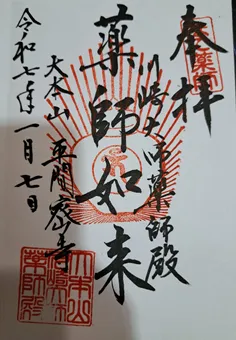 奉拝
川崎大師薬師殿
薬師如来
大本山 平間密寺
令和七年一月七日
大本山
川崎大師
薬師殿